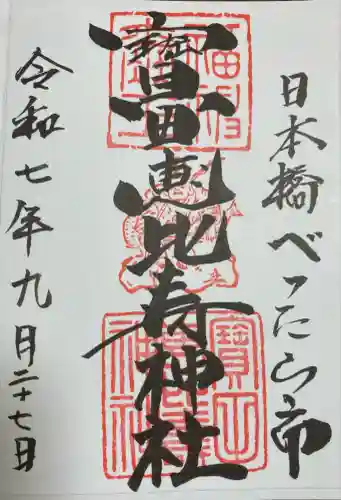 日本橋べったら市
寶田恵比寿神社
令和七年九月二十七日